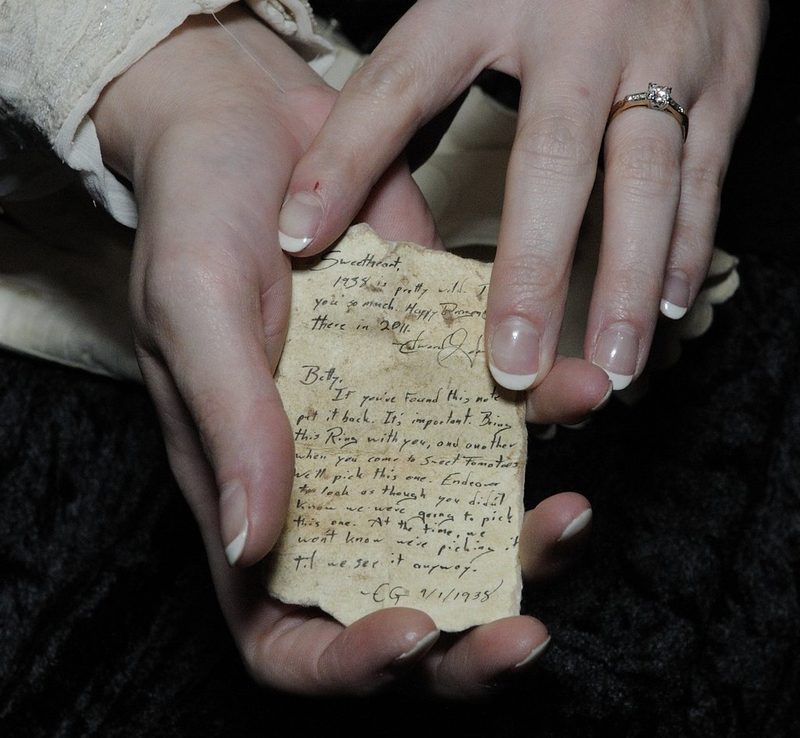 Sweetheart,
1938 is pretty wild. I
you so much. Happy
there in 2011.
Edward
Betty,
If you've found this note
put it back. It's important. Bring
this Ring with you, and another
when you come to Sweet Tomatoes
we'll pick this one. Endeavor
to look as though you didn't
know we were going to pick
this one. At the time, we
won't know we're picking it
til we see it anyway.
-EG 9/1/1938